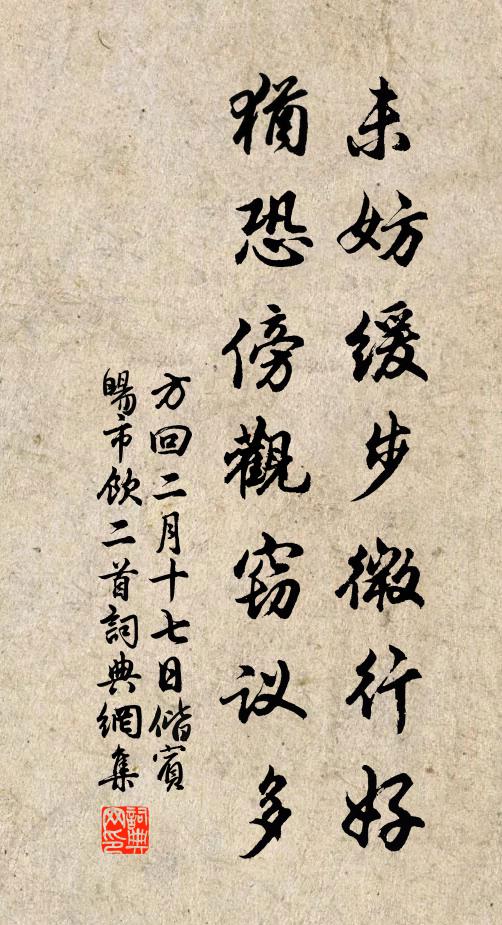 未妨缓步微行好
猶恐傍觀窃议多
方回二月十七日偕賓
暘市飲二首詞典網集
詞典网印